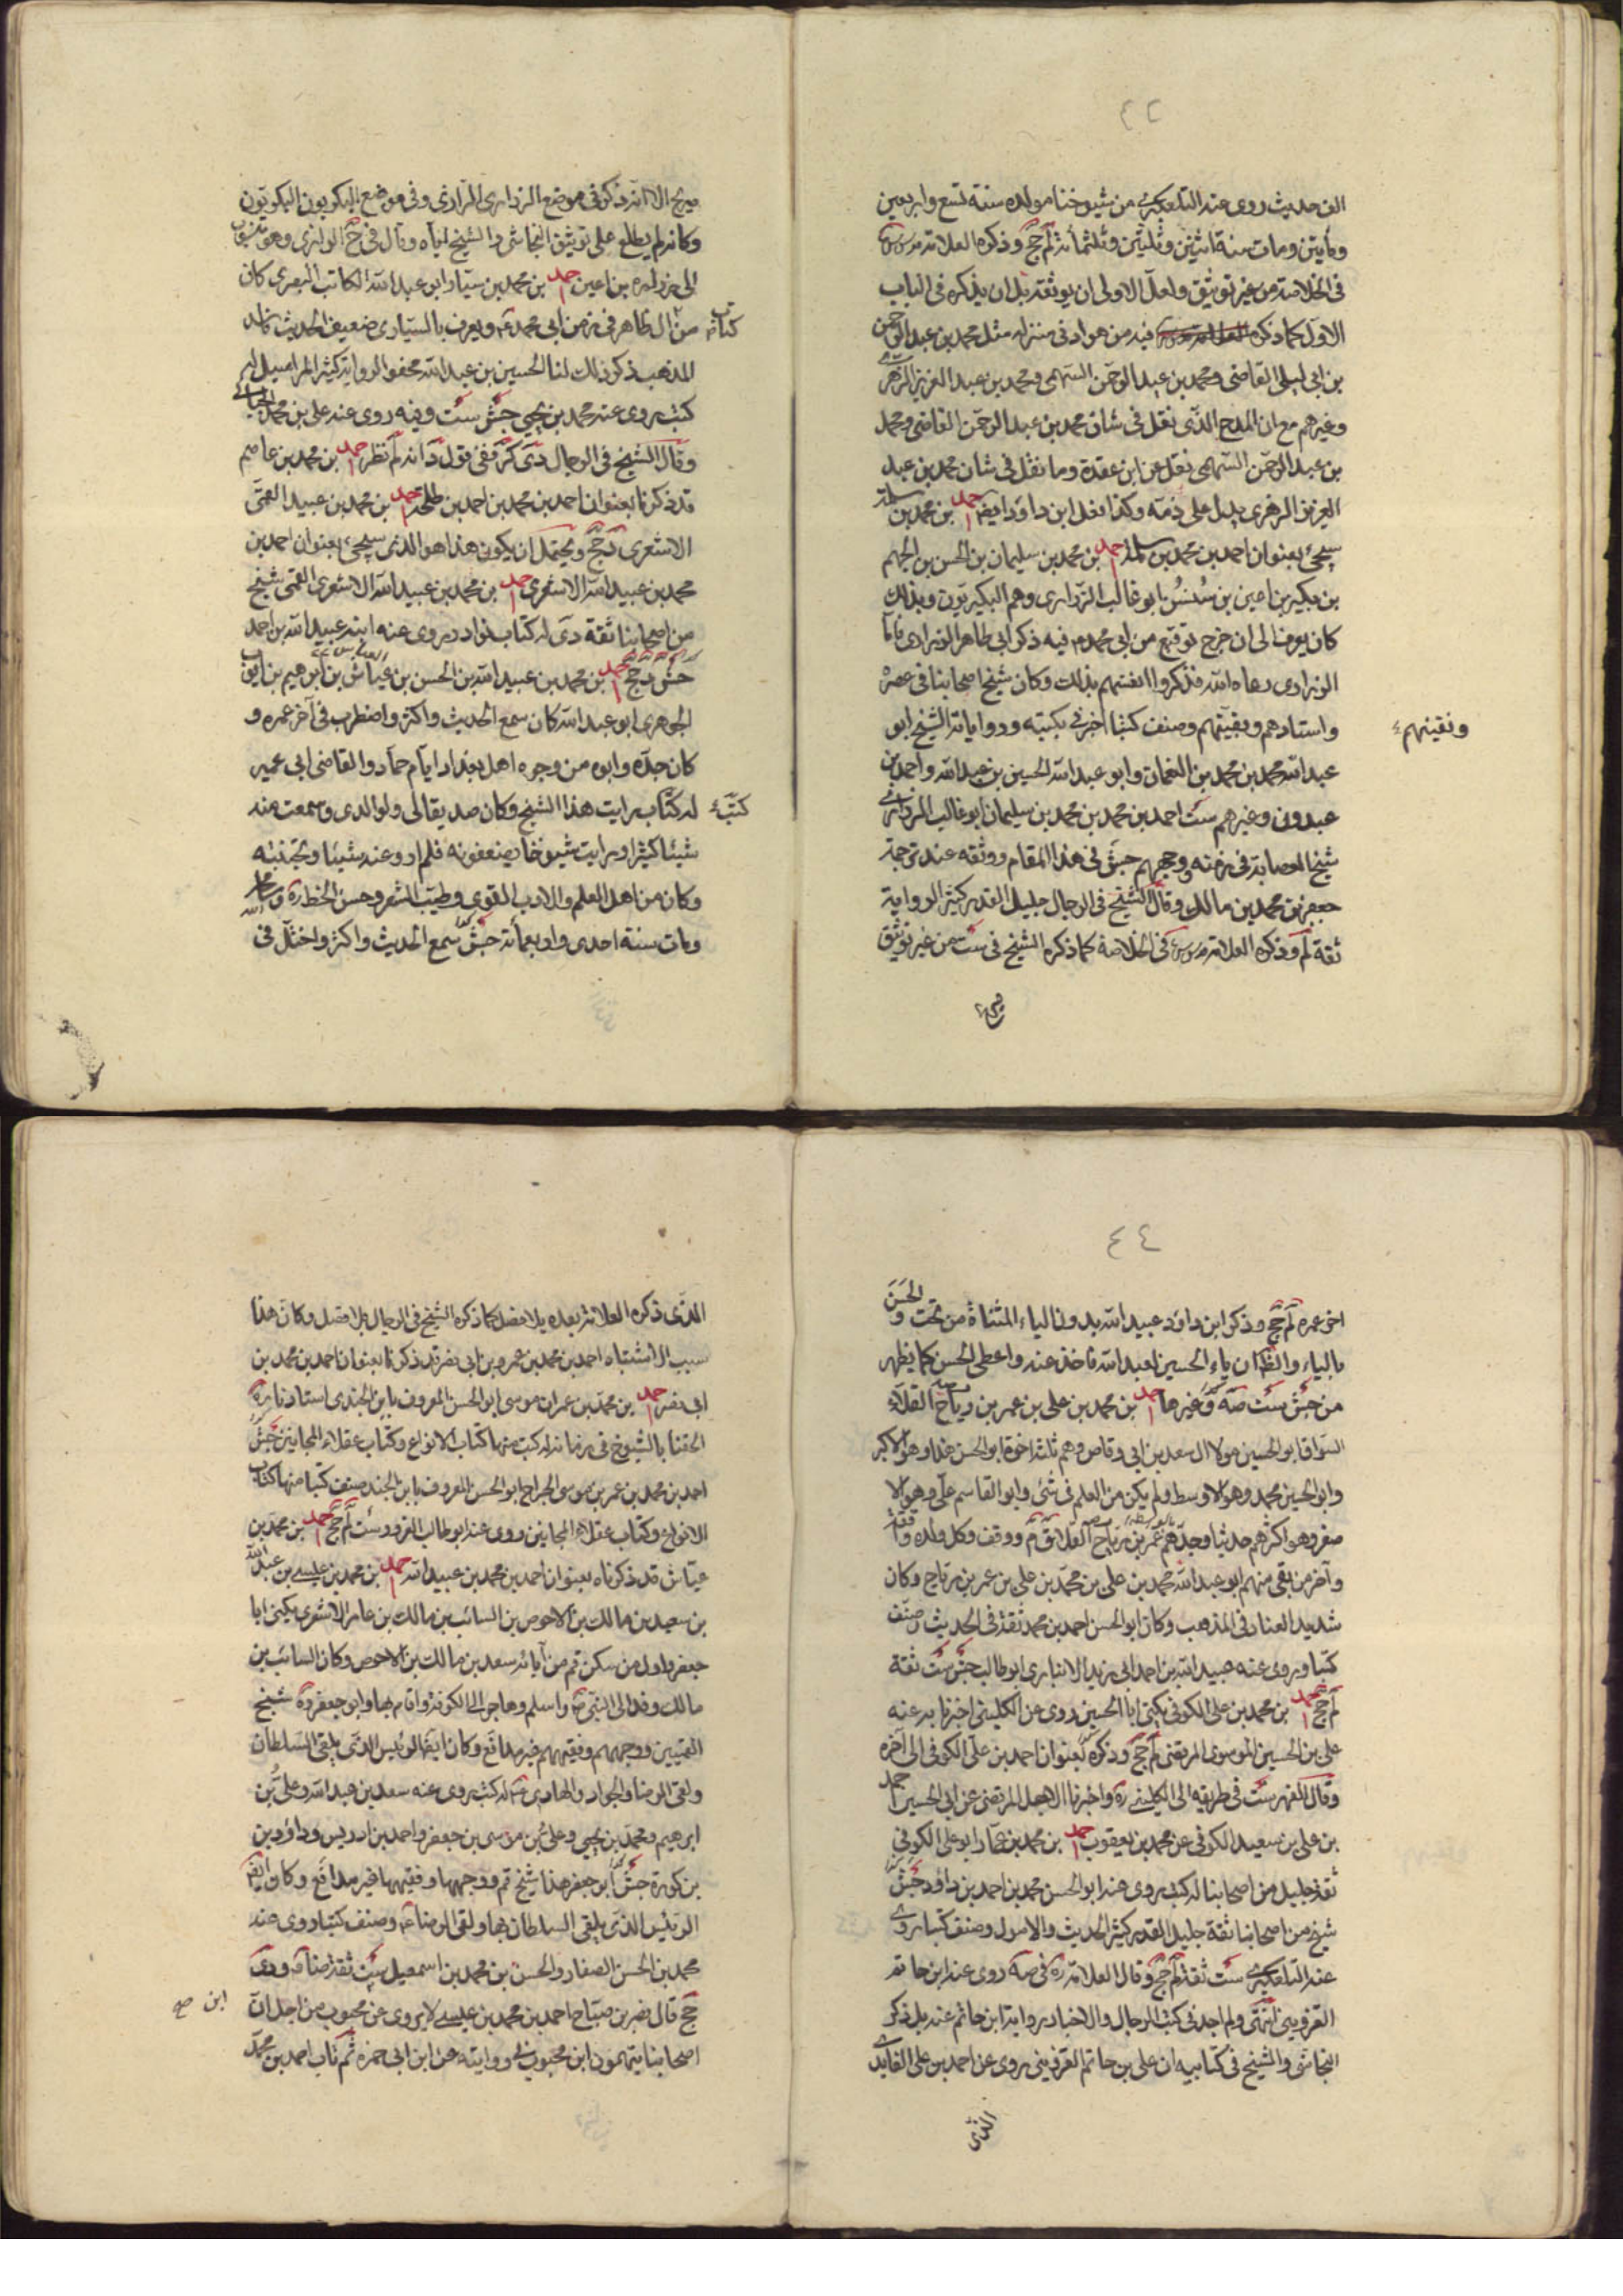 ٤٢
الف حديث روى عنه التلعكبرى من شيوخنا مولده سنة تسع واربعين
ومأيتن ومات سنة اثنين وثلثين وثلثمأئة لم جخ وذكره العلامة
في الخلاصة من غير توثيق ولعل الاولى ان يوثقه بل ان يذكره في الباب
الاول كما ذكره فيه من هو ادنى منزلة مثل محمد بن عبد الرحمن
بن ابى ليلى القاضى ومحمد بن عبد الرحمن السهمى ومحمد بن عبد العزيز الزهرى
وغيرهم مع ان المدح الذى نقل في شان محمد بن عبد الرحمن القاضى ومحمد
بن عبد الرحمن السهمى نقل عن ابن عقدة وما نقل في شان محمد بن عبد
العزيز الزهرى يدل على ذمه وكذا فعل ابن داود ايضا احمد بن محمد بن سلمة
سيجئ بعنوان احمد بن محمد بن سلمة احمد بن محمد بن سليمان بن الحسن بن الجهم
بن بكير بن اعين بن سنسن ابو غالب الزرارى وهم البكيريون وبذلك
كان يعرف الى ان خرج توقيع من ابى محمد ع فيه ذكر ابى طاهر الزرارى فاما
الزرارى رعاه الله فذكروا انفسهم بذلك وكان شيخ اصحابنا في عصره
واستادهم وبقيتهم وصنف كتبا اخبرنى بكتبه ورواياته الشيخ ابو
ونقيتهم
عبد الله محمد بن محمد بن النعمان وابو عبد الله الحسين بن عبد الله واحمد بن
عبدون وغيرهم ست احمد بن محمد بن محمد بن سليمان ابو غالب الزرارى
شيخ العصابة في زمنه ووجههم جش في هذا المقام ووثقه عند ترجمة
جعفر بن محمد بن مالك وقال الشيخ في الرجال جليل القدر كثير الرواية
ثقة لم وذكره العلامة في الخلاصة كما ذكره الشيخ في ست من غير توثيق
صريح الا انه ذكر في موضع الزرارى الرازى وفي موضع البكريون البكويون
وكانه لم يطلع على توثيق النجاشى والشيخ اياه وقال في جخ الزرارى وهو منسوب
الى زرارة بن اعين احمد بن محمد بن سيار ابو عبد الله الكاتب البصرى كان
من ال طاهر في زمن ابى محمد ع ويعرف بالسيارى ضعيف الحديث فاسد
كتاب
المذهب ذكر ذلك لنا الحسين بن عبد الله مجفو الرواية كثير المراسيل له
كتب روى عنه محمد بن يحيى جش ست وفيه روى عنه على بن محمد الجبائى
وقال الشيخ في الرجال دى كر ففي قول د انه لم نظر احمد بن محمد بن عاصم
قد ذكرنا بعنوان احمد بن محمد بن احمد بن طلحة احمد بن محمد بن عبيد القمى
الاشعرى د جخ ويحتمل ان يكون هذا هو الذى سيجئ بعنوان احمد بن
محمد بن عبيد الله الاشعرى احمد بن محمد بن عبيد الله الاشعرى القمى شيخ
من اصحابنا ثقة دى له كتاب نوادر روى عنه ابنه عبيد الله بن احمد
جش د جخ احمد بن محمد بن عبيد الله بن الحسن بن عياش بن ابرهيم بن ايوب
الجوهرى ابو عبد الله كان سمع الحديث واكثر واضطرب في آخر عمره و
كان جده وابوه من وجوه اهل بغداد ايام آل حماد والقاضى ابى عمير
له كتاب رايت هذا الشيخ وكان صديقا لى ولوالدى وسمعت منه
كتب
شيئا كثيرا ورايت شيوخنا يضعفونه فلم ارو عنه شيئا وتجنبته
وكان من اهل العلم والادب القوى وطيب الشعر وحسن الخط ره
ومات سنة احدى واربعمأئة جش سمع الحديث واكثر واختل في
٤٤
اخر عمره لم جخ وذكر ابن داود عبيد الله بدون الياء المثناة من تحت والحسن
بالياء والظ ان ياء الحسين لعبد الله فاخذ عنه واعطى الحسن كما يظهر
من جش ست صه وغيرها احمد بن محمد بن على بن عمر بن رياح القلاء
السواق ابو الحسين مولا ال سعد بن ابى وقاص وهم ثلثه اخوة ابو الحسن هذا وهو الاكبر
وابو الحسين محمد وهو الاوسط ولم يكن من العلم في شئ وابو القاسم على وهو الا
صغر وهو اكثرهم حديثا وجدهم عمر بن رياح القلاء ووقف وكل ولده واقفة
وآخر من بقى منهم ابو عبد الله محمد بن على بن محمد بن على بن عمر بن رياح وكان
شديد العناد في المذهب وكان ابو الحسن احمد بن محمد ثقة في الحديث وصنف
كتبا وروى عنه عبيد الله بن احمد ابى زيد الانبارى ابو طالب جش ست ثقة
لم جخ احمد بن محمد بن على الكوفى يكنى ابا الحسين روى عن الكلينى اخبرنا به عنه
على بن الحسين الموسوى المرتضى لم جخ وذكره بعنوان احمد بن على الكوفى الى آخره
وقال الفهرست في طريقه الى الكلينى ره واخبرنا الاجل المرتضى عن ابى الحسين احمد
بن على بن سعيد الكوفى عن محمد بن يعقوب احمد بن محمد بن عمار ابو على الكوفى
ثقة جليل من اصحابنا له كتب روى عنه ابو الحسن محمد بن احمد بن داود جش
شيخ من اصحابنا ثقة جليل القدر كثير الحديث والاصول وصنف كتبا روى
عنه التلعكبرى ست ثقة لم جخ وقال العلامة ره في صه روى عنه ابن حاتم
القزوينى انتهى ولم اجد في كتب الرجال والاخبار رواية ابن حاتم عنه بل ذكر
النجاشى والشيخ في كتابيه ان على بن حاتم القزوينى يروى عن احمد بن على الفايدى
الذى
الذى ذكره العلامة بعده بلا فصل كما ذكره الشيخ في الرجال بلا فصل وكان هذا
سبب الاشتباه احمد بن محمد بن عمرو بن ابى نصر قد ذكرنا بعنوان احمد بن محمد بن
ابى نصر احمد بن محمد بن عمران موسى ابو الحسن المعروف بابن الجندى استادنا ره
الحقنا بالشيوخ في زمانه له كتب منها كتاب الانواع وكتاب عقلاء المجانين جش
احمد بن محمد بن عمر بن موسى الجراح ابو الحسن المعروف بابن الجند صنف كتبا منها كتاب
الانواع وكتاب عقلاء المجانين روى عنه ابو طالب الغرور ست لم جخ احمد بن محمد بن
عياش قد ذكرناه بعنوان احمد بن محمد بن عبيد الله احمد بن محمد بن عيسى بن عبد الله
بن سعيد بن مالك بن الاحوص بن السائب بن مالك بن عامر الاشعرى يكنى ابا
جعفر واول من سكن قم من آبائه سعد بن مالك بن الاحوص وكان السائب بن
مالك وفد الى النبى ص واسلم وهاجر الى الكوفة واقام بها وابو جعفر ره شيخ
القميين ووجههم وفقيههم غير مدافع وكان ايضا الرئيس الذى يلقى السلطان
ولقى الرضا والجواد والهادى ع له كتب روى عنه سعد بن عبد الله وعلى بن
ابرهيم ومحمد بن يحيى وعلى بن موسى بن جعفر واحمد بن ادريس وداود بن
بن كورة جش ابو جعفر هذا شيخ قم ووجهها وفقيهها غير مدافع وكان ايضا
الرئيس الذى يلقى السلطان بها ولقى الرضا ع وصنف كتبا روى عنه
محمد بن الحسن الصفار والحسن بن محمد بن اسمعيل ست ثقة ضا د ودى
جخ قال نصر بن صباح احمد بن محمد بن عيسى لا يروى عن محبوب من اجل ان
ابن صح
اصحابنا يتهمون ابن محبوب في روايته عن ابن ابى حمزه ثم تاب احمد بن محمد